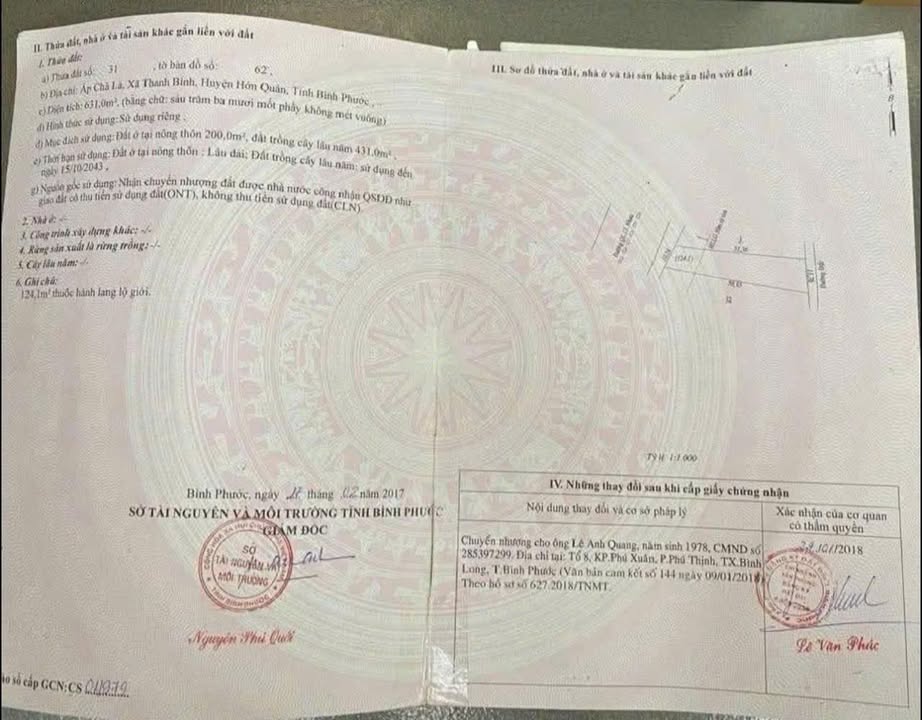 II. Thửa đất, nhà ở và tài sản khác gắn liền với đất
1. Thửa đất:
a) Thửa đất số: 31 , tờ bản đồ số: 62,
b) Địa chỉ: Ấp Chà Là, Xã Thanh Bình, Huyện Hớn Quản, Tỉnh Bình Phước,
c) Diện tích: 631,0m², (bằng chữ: sáu trăm ba mươi mốt phẩy không mét vuông)
d) Hình thức sử dụng: Sử dụng riêng ,
đ) Mục đích sử dụng: Đất ở tại nông thôn 200,0m², đất trồng cây lâu năm 431,0m²,
e) Thời hạn sử dụng: Đất ở tại nông thôn : Lâu dài; Đất trồng cây lâu năm: sử dụng đến
ngày 15/10/2043 ,
g) Nguồn gốc sử dụng: Nhận chuyển nhượng đất được nhà nước công nhận QSDĐ như
giao đất có thu tiền sử dụng đất(ONT), không thu tiền sử dụng đất(CLN).
2. Nhà ở: -/-
3. Công trình xây dựng khác: -/-
4. Rừng sản xuất là rừng trồng: -/-
5. Cây lâu năm: -/-
6. Ghi chú:
124,1m² thuộc hành lang lộ giới.
Bình Phước, ngày tháng 02 năm 2017
SỞ TÀI NGUYÊN VÀ MÔI TRƯỜNG TỈNH BÌNH PHƯỚC
GIÁM ĐỐC
SỞ
TÀI NGUYÊN VÀ
MÔI TRƯỜNG
Nguyễn Phú Quới
số cấp GCN: CS
III. Sơ đồ thửa đất, nhà ở và tài sản khác gắn liền với đất
(124.1)
32
TỶ LỆ 1:1 000
IV. Những thay đổi sau khi cấp giấy chứng nhận
Nội dung thay đổi và cơ sở pháp lý
Xác nhận của cơ quan
có thẩm quyền
Chuyển nhượng cho ông Lê Anh Quang, năm sinh 1978, CMND số
285397299. Địa chỉ tại: Tổ 8, KP.Phú Xuân, P.Phú Thịnh, TX.Bình
Long, T.Bình Phước (Văn bản cam kết số 144 ngày 09/01/2018)
Theo hồ sơ số 627.2018/TNMT.
/01/2018
Lê Văn Phúc